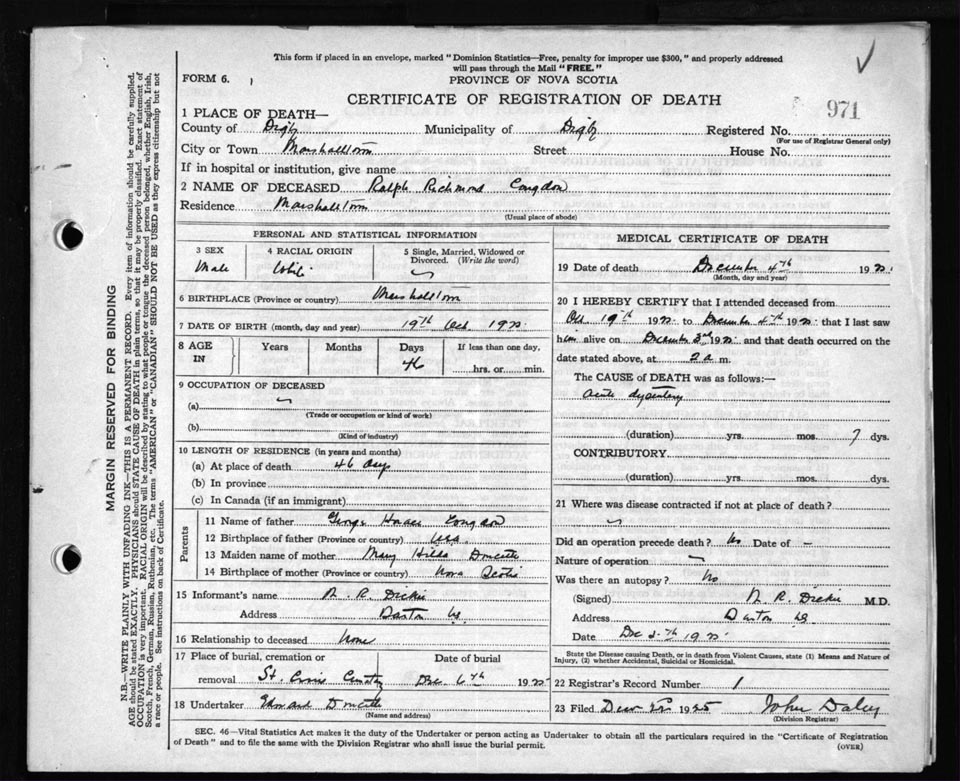 This form if placed in an envelope, marked "Dominion Statistics—Free, penalty for improper use $300," and properly addressed
will pass through the Mail "FREE."
FORM 6.
PROVINCE OF NOVA SCOTIA
CERTIFICATE OF REGISTRATION OF DEATH
971
1 PLACE OF DEATH—
County of Digby Municipality of Digby Registered No.
(For use of Registrar General only)
City or Town Marshalltown Street House No.
If in hospital or institution, give name
2 NAME OF DECEASED Ralph Richmond Congdon
Residence Marshalltown
(Usual place of abode)
PERSONAL AND STATISTICAL INFORMATION
3 SEX 4 RACIAL ORIGIN 5 Single, Married, Widowed or
Divorced. (Write the word)
Male White
6 BIRTHPLACE (Province or country) Marshalltown
7 DATE OF BIRTH (month, day and year) 19th Oct 1925
8 AGE IN Years Months Days If less than one day,
46 hrs. or min.
9 OCCUPATION OF DECEASED
(a)
(Trade or occupation or kind of work)
(b)
(Kind of industry)
10 LENGTH OF RESIDENCE (in years and months)
(a) At place of death 46 days
(b) In province
(c) In Canada (if an immigrant)
Parents
11 Name of father George Horace Congdon
12 Birthplace of father (Province or country) USA
13 Maiden name of mother Mary Hilda Doucette
14 Birthplace of mother (Province or country) Nova Scotia
15 Informant's name
Address Barton
16 Relationship to deceased None
17 Place of burial, cremation or Date of burial
removal St. Croix Cemetery Dec 6th 1925
18 Undertaker Edward Doucette
(Name and address)
MEDICAL CERTIFICATE OF DEATH
19 Date of death December 4th 1925
(Month, day and year)
20 I HEREBY CERTIFY that I attended deceased from
Oct 19th 1925 to December 4th 1925 that I last saw
him alive on December 3rd 1925 and that death occurred on the
date stated above, at 2 a m.
The CAUSE of DEATH was as follows:—
acute dysentery
(duration) yrs. mos. 7 dys.
CONTRIBUTORY
(duration) yrs. mos. dys.
21 Where was disease contracted if not at place of death?
Did an operation precede death? No Date of –
Nature of operation
Was there an autopsy? No
(Signed) M.D.
Address Barton
Date Dec
State the Disease causing Death, or in death from Violent Causes, state (1) Means and Nature of
Injury, (2) whether Accidental, Suicidal or Homicidal.
22 Registrar's Record Number 1
23 Filed 1925 John Daley
(Division Registrar)
SEC. 46—Vital Statistics Act makes it the duty of the Undertaker or person acting as Undertaker to obtain all the particulars required in the "Certificate of Registration
of Death" and to file the same with the Division Registrar who shall issue the burial permit.
(OVER)
MARGIN RESERVED FOR BINDING
N.B.—WRITE PLAINLY WITH UNFADING INK—THIS IS A PERMANENT RECORD. Every item of information should be carefully supplied.
AGE should be stated EXACTLY. PHYSICIANS should STATE CAUSE OF DEATH in plain terms, so that it may be properly classified. Exact statement of
OCCUPATION is very important. RACIAL ORIGIN will be described by stating to what people or tongue the deceased person belonged, whether English, Irish,
Scotch, French, German, Russian, Ruthenian, etc. The terms "AMERICAN" or "CANADIAN" SHOULD NOT BE USED as they express citizenship but not
a race or people. See instructions on back of Certificate.